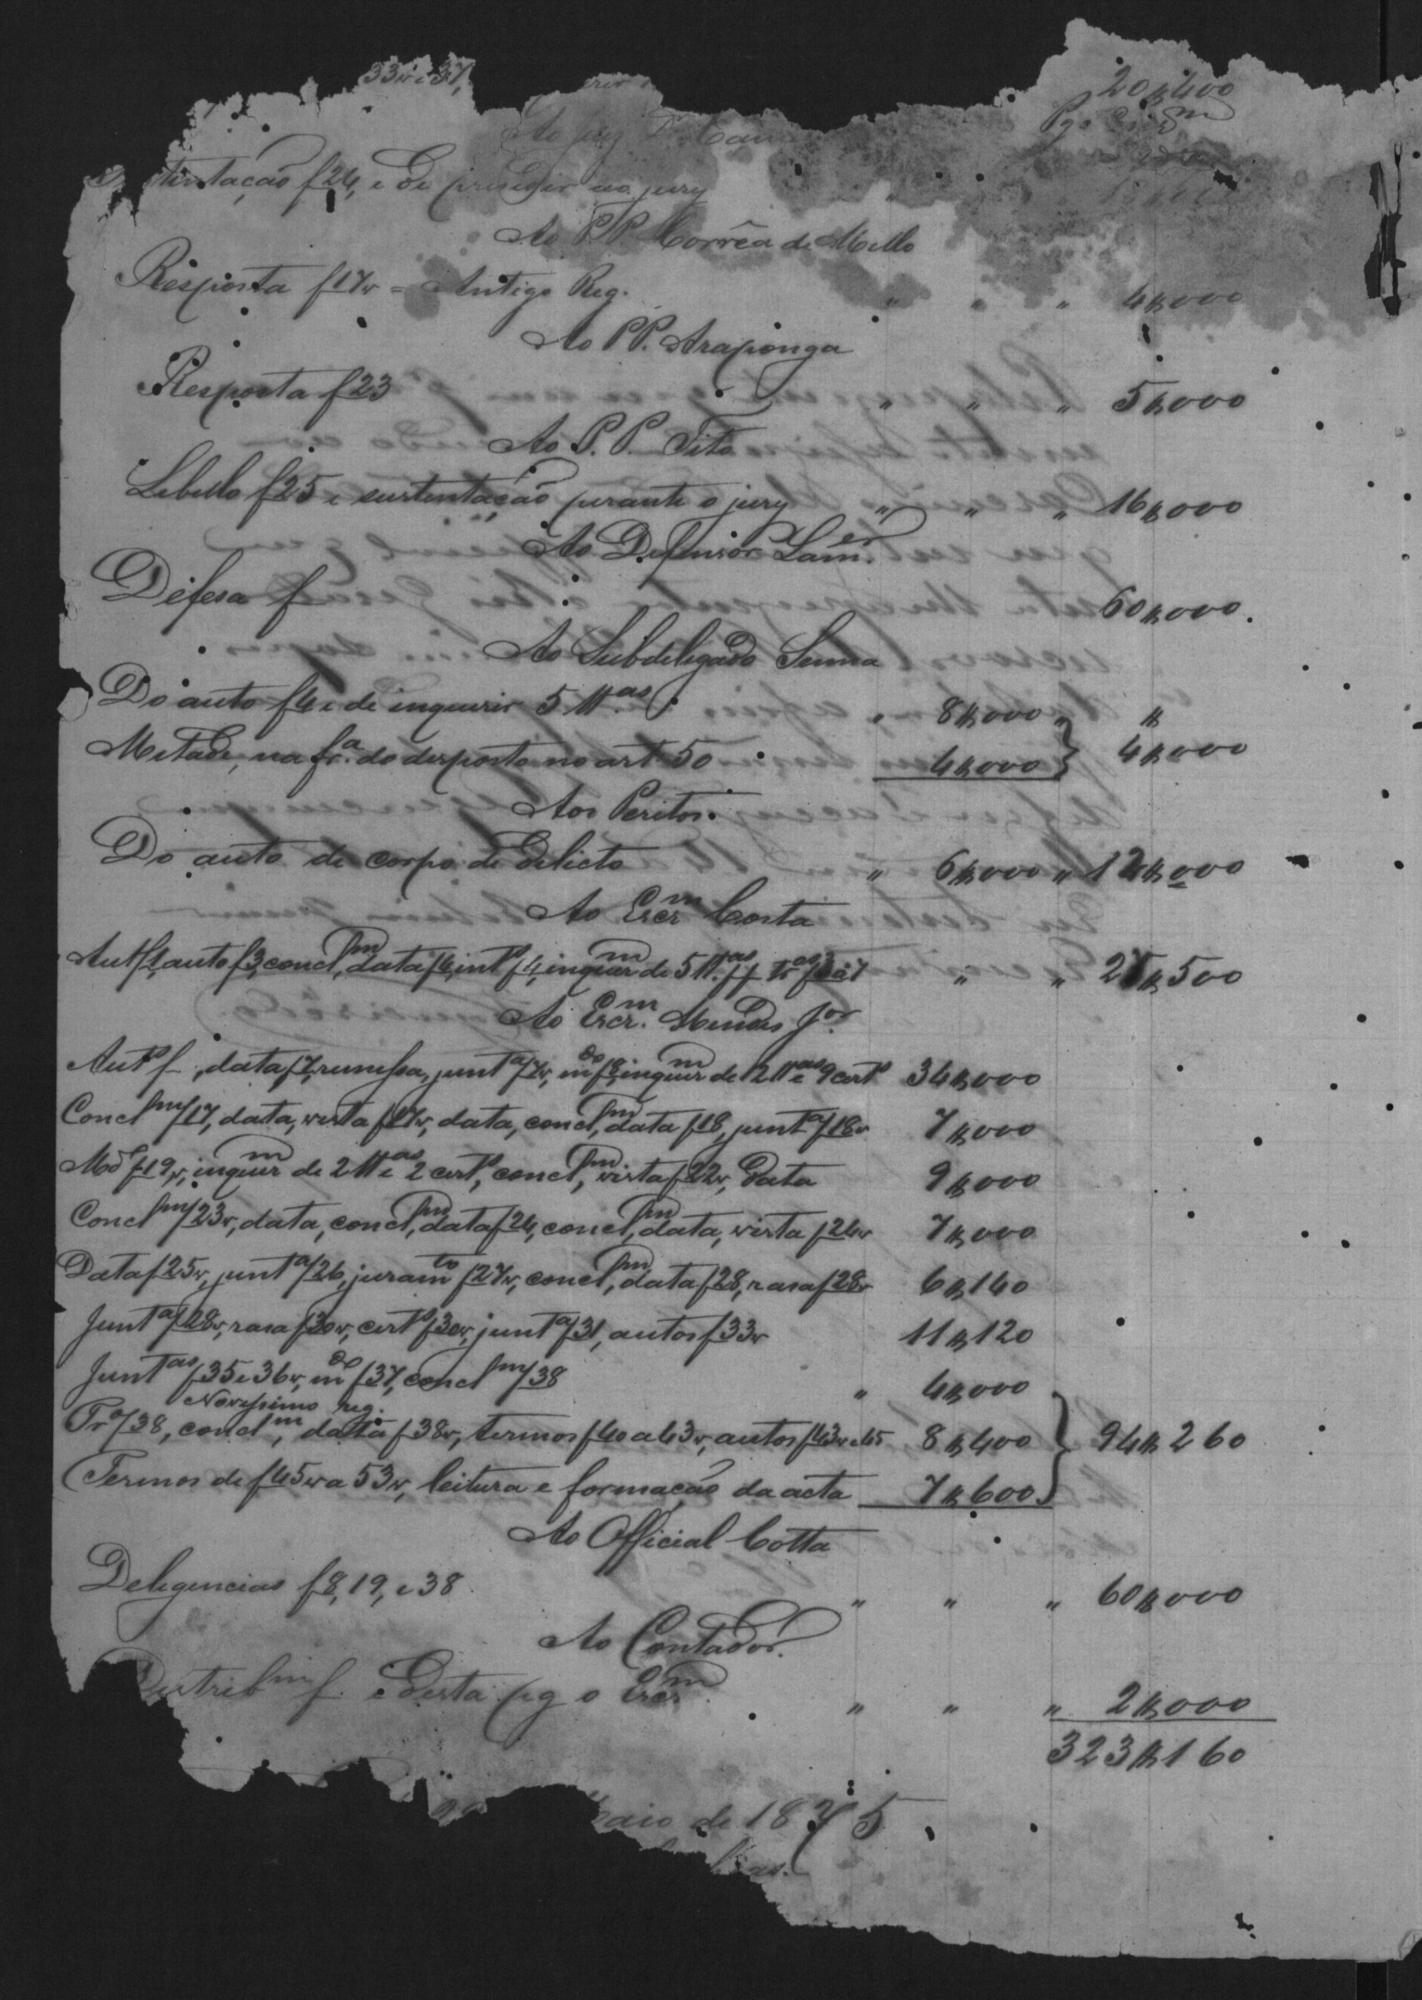 33v e 37,
20$400
Ao juiz Dr.
tentação f 24, e de presidir ao jury
Ao P.P. Corrêa de Mello
Resposta f 17v = Antigo Reg. " " " 4$000
Ao P.P. Araponga
Resposta f 23 " " " 5$000
Ao P. P. Tito
Libello f 25 e sustentação perante o jury " " " 16$000
Ao Defensor Lam.er
Defesa f 60$000.
Ao Subdelegado Senna
Do auto f 4 e de inquirir 5 tt.as " 8$000 " $
Metade, na f.a do desposto no art. 50 4$000 } 4$000
Aos Peritos.
Do auto de corpo de delicto " 6$000 " 12$000
Ao Escr.m Costa
Aut f 1, auto f 3, concl.m, data f 4, int.o f 4, inquir.m de 5 tt.as f f tr.as f 3 a 7 " " 25$500
Ao Escr.m Mendes J.or
Aut.o f , data f 7, remessa, junt.a f 7v, m.do f 8, inquir.m de 12 tt.as e 9 cert.s 34$000
Concl.m f 17, data, vista f 17v, data, concl.m, data f 18, junt.a f 18v 7$000
M.do f 19v, inquir.m de 2 tt.as e 2 cert.s, concl.m, vista f 22v, data 9$000
Concl.m f 23v, data, concl.m, data f 24, concl.m, data, vista f 24v 7$000
Data f 25v, junt.a f 26, juram.to f 27v, concl.m, data f 28, rasa f 28v 6$140
Junt.a f 28v, rasa f 30v, cert.o f 30v, junt.a f 31, autos f 33v 11$120
Junt.as f 35 e 36v, m.do f 37, concl.m f 38 " 4$000
Novissimo reg.
Tr.a f 38, concl.m, data f 38v, termos f 40 a 43v, autos f 43v e 45 8$400 } 94$260
Termos de f 45v a 53v, leitura e formação da acta 7$600
Ao Official Cotta
Deligencias f 8, 19, e 38 " " " 60$000
Ao Contador.
Distrib.m f e desta pg o Escr.m " " " 2$000
323$160
maio de 1875